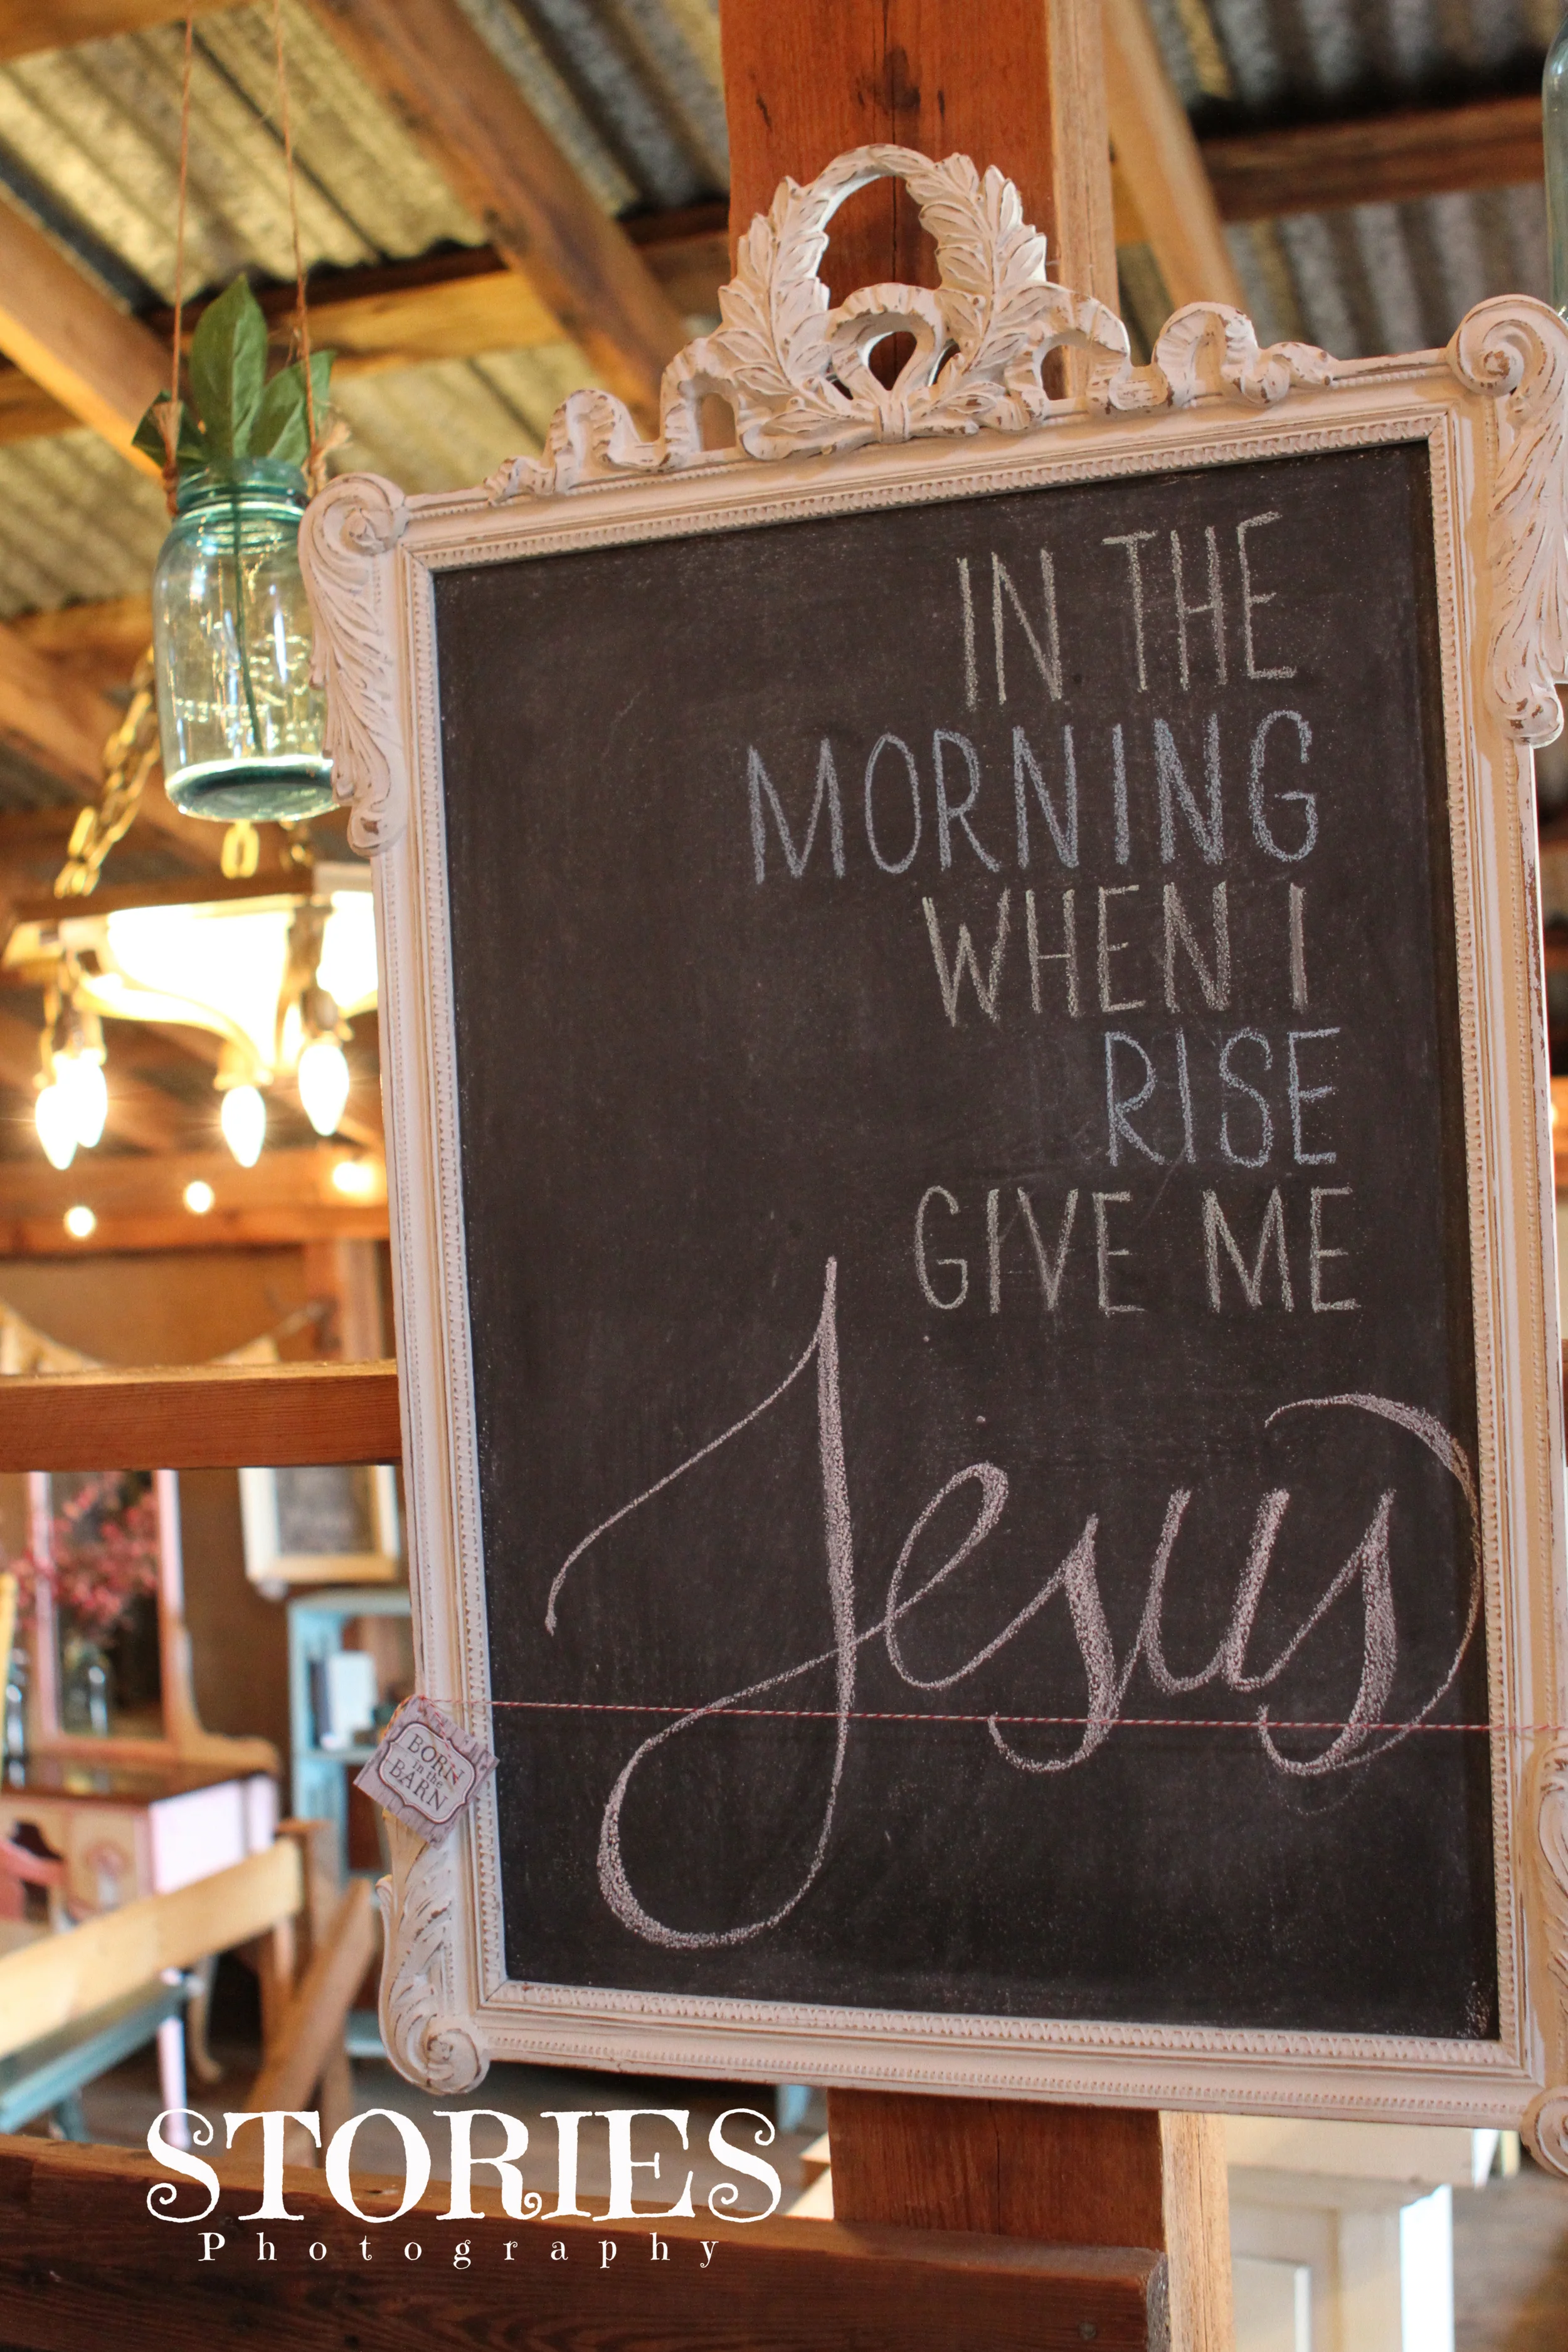 IN THE
MORNING
WHEN I
RISE
GIVE ME
Jesus
BORN
in the
BARN
STORIES
Photography